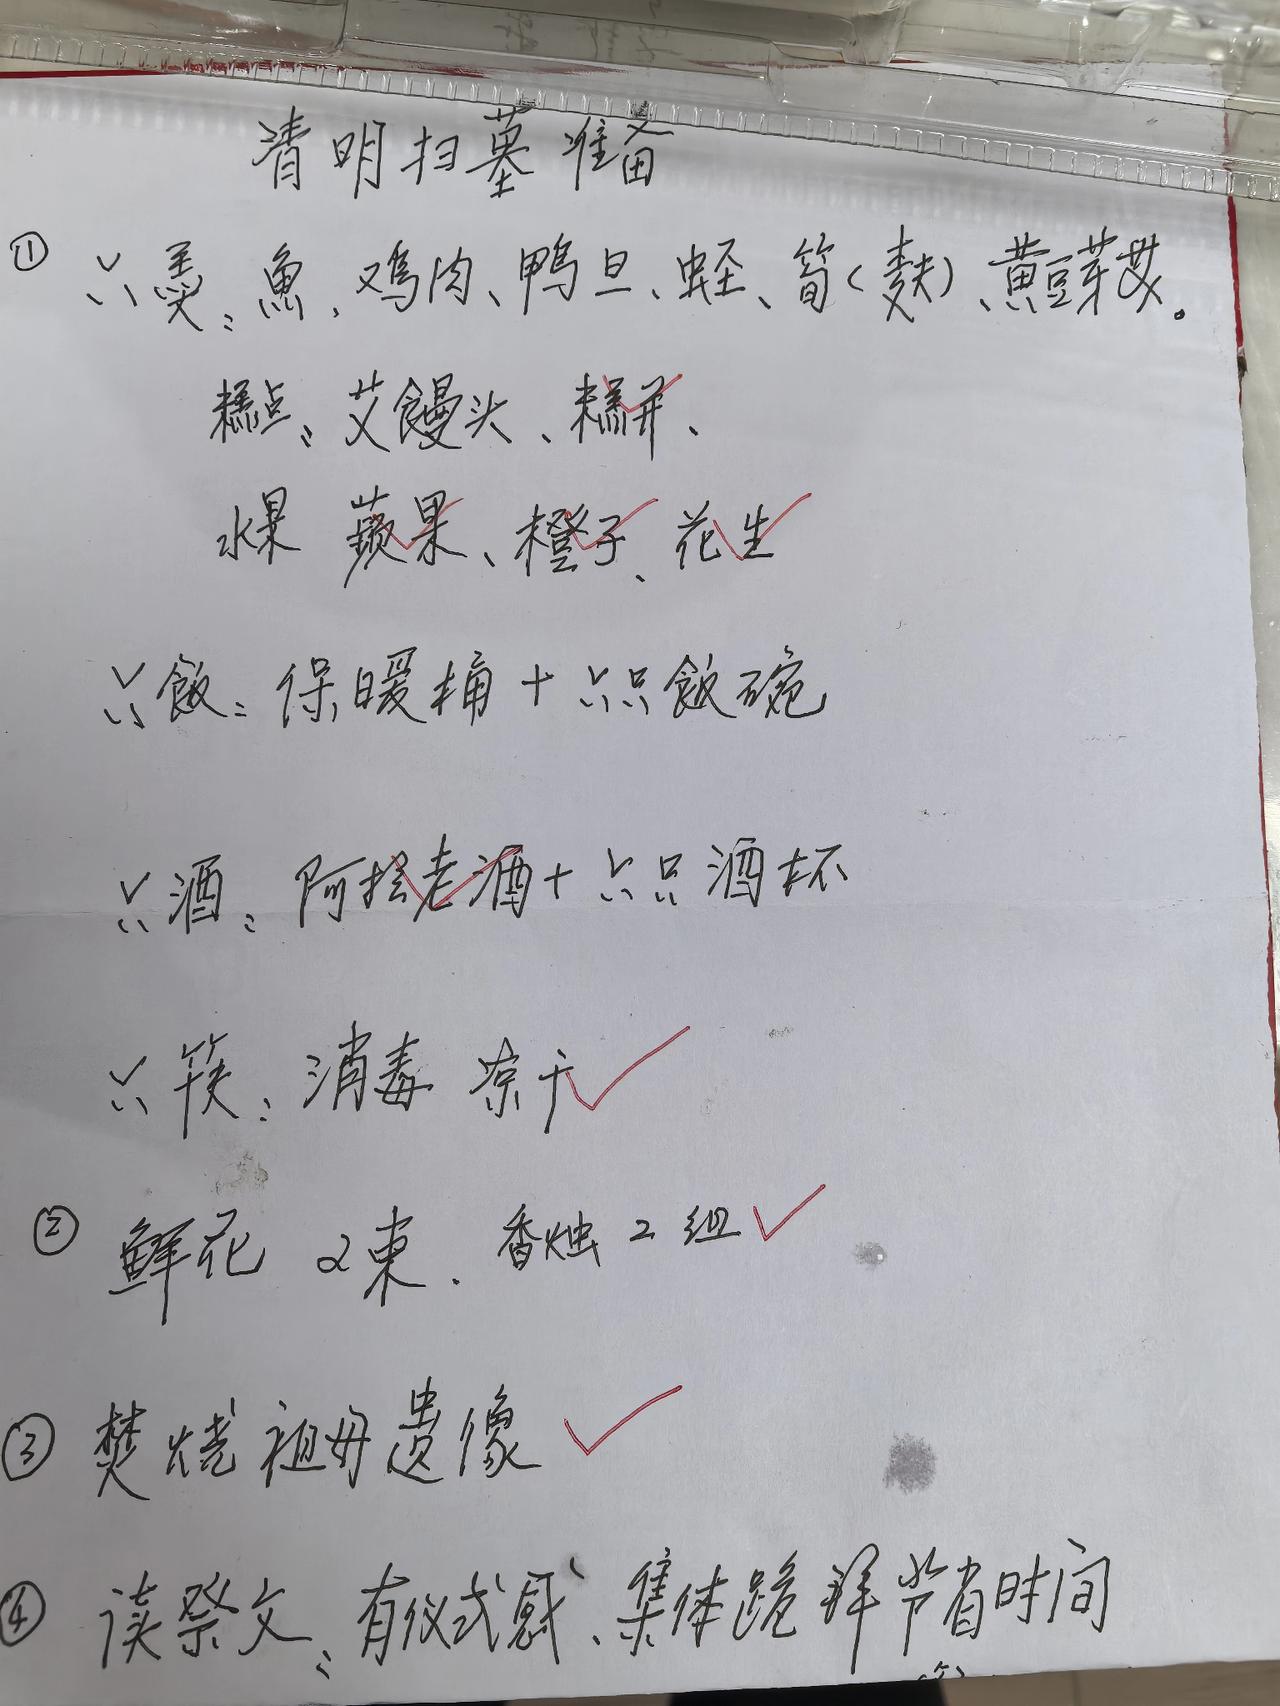 清明扫墓准备
① 六羹：魚、鸡肉、鸭旦、蛏、筍（麩）、黄豆芽
糕点：艾饅头、糕饼、
水果 蘋果、橙子、花生
六飯：保暖桶＋六只飯碗
六酒：阿拉老酒＋六只酒杯
六筷：消毒 凉干
② 鲜花 2束. 香烛 2 组
③ 焚烧祖母遗像
④ 读祭文：有仪式感、集体跪拜节省时间